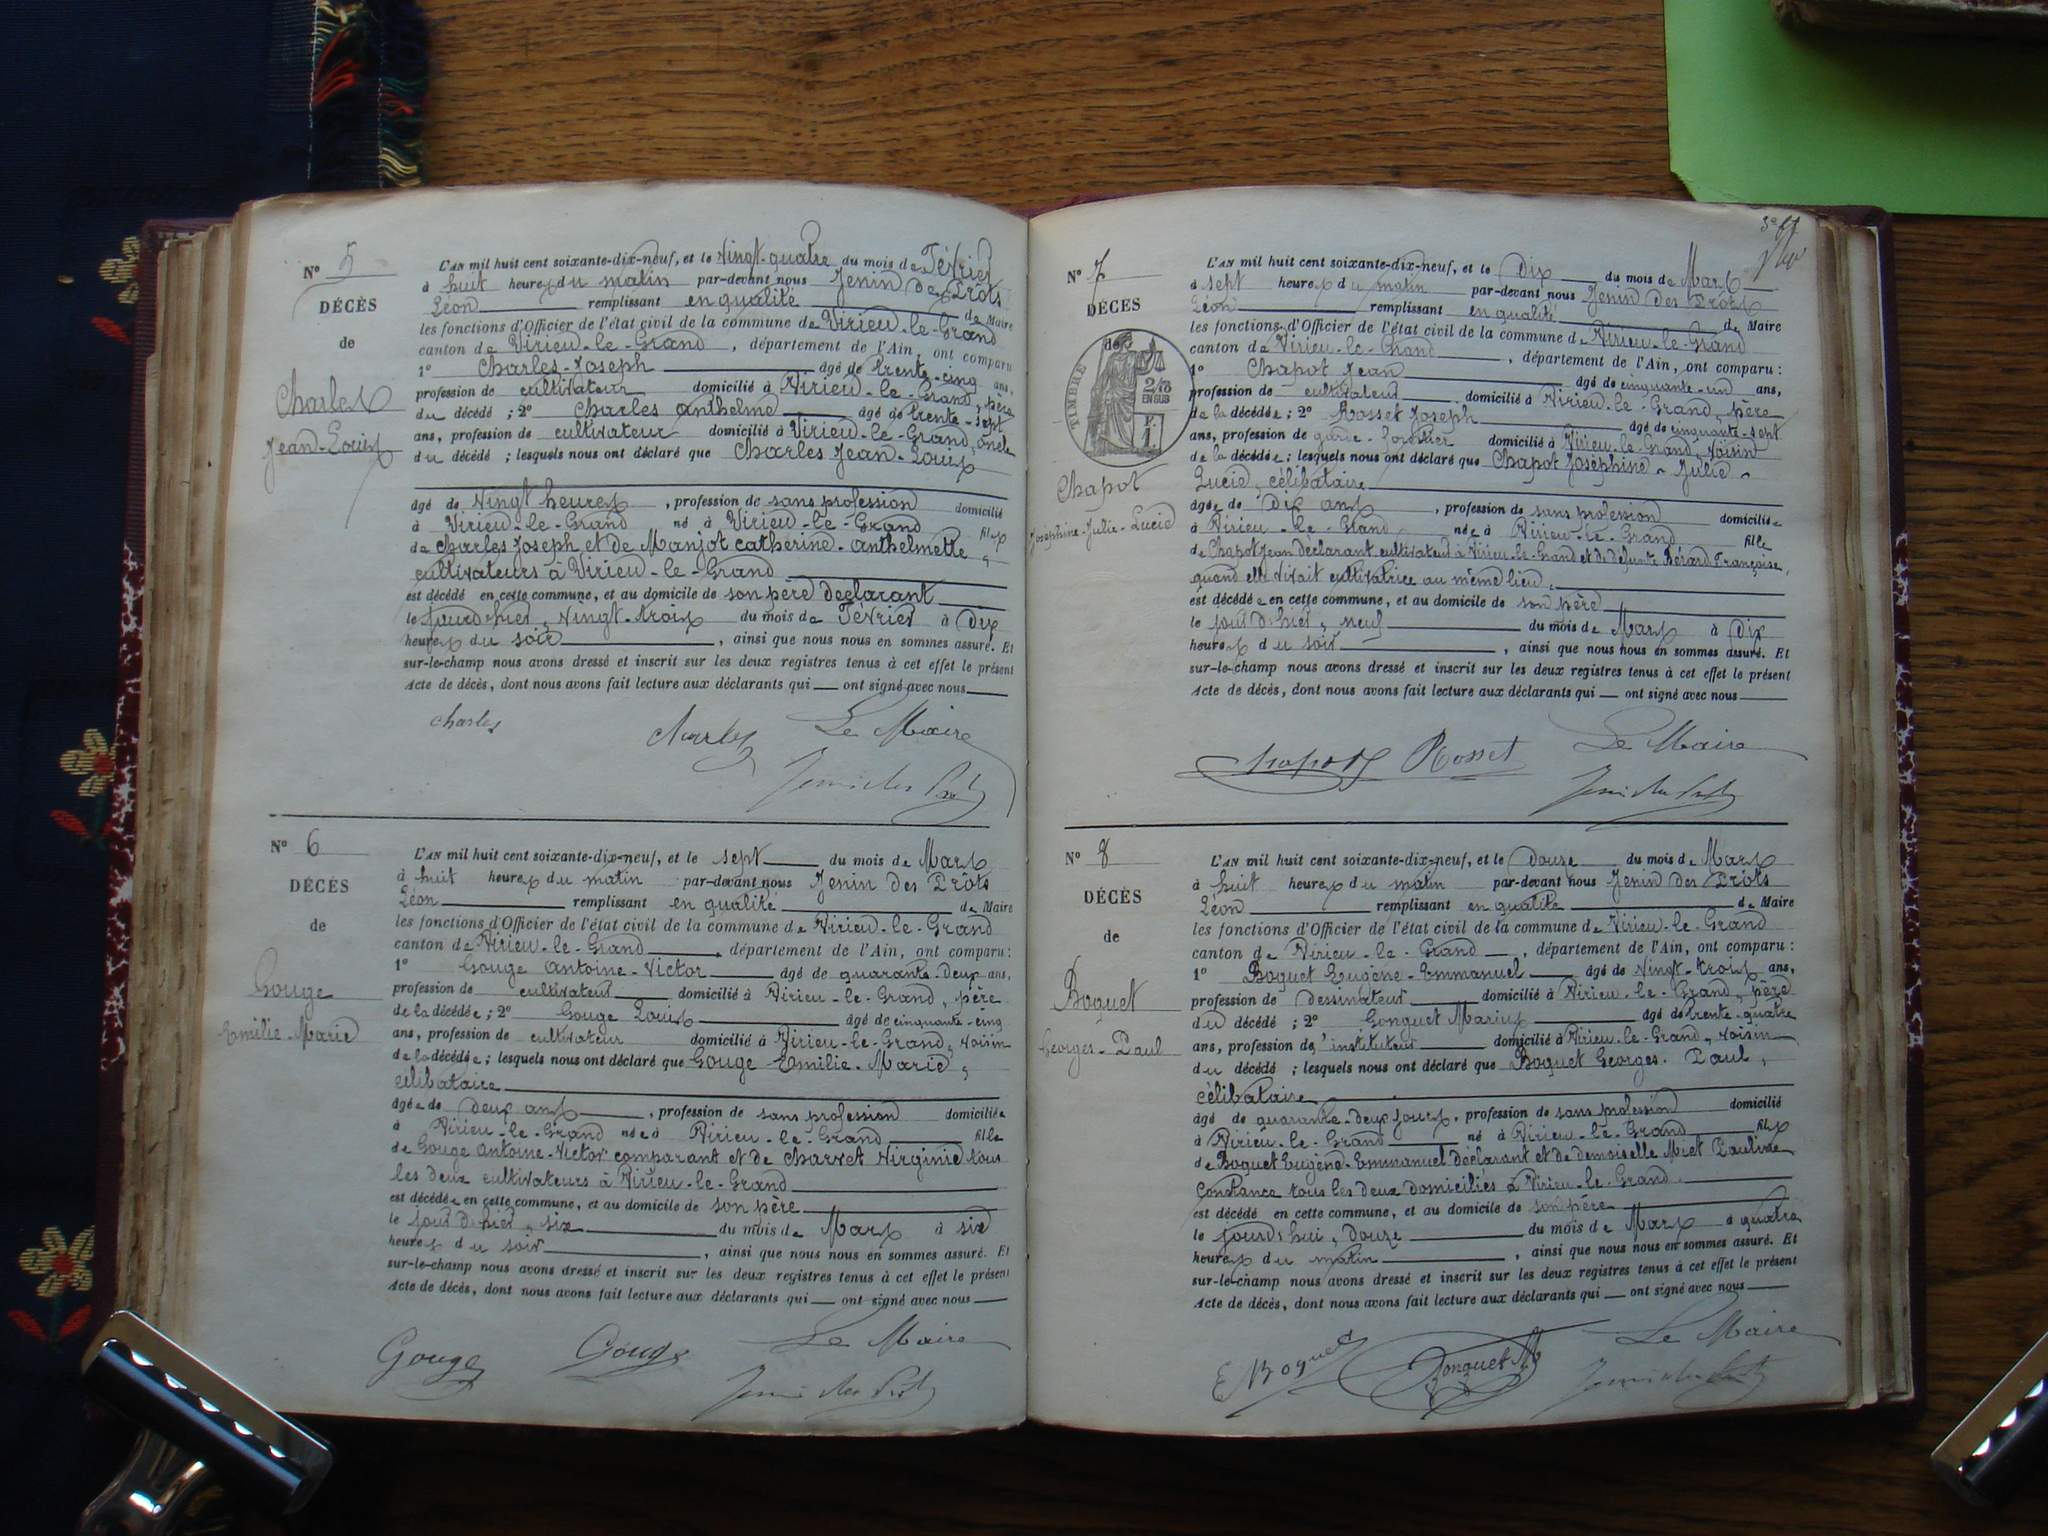 N° 5
DÉCÈS
de
Charles
Jean-Louis
L'AN mil huit cent soixante-dix-neuf, et le vingt-quatre du mois de Février
à huit heures du matin par-devant nous Jenin des Prôts
Léon remplissant en qualité de Maire
les fonctions d'Officier de l'état civil de la commune de Virieu-le-Grand
canton de Virieu-le-Grand, département de l'Ain, ont comparu
1° Charles-Joseph âgé de trente-cinq ans,
profession de cultivateur domicilié à Virieu-le-Grand, père
du décédé ; 2° Charles Anthelme âgé de trente-sept
ans, profession de cultivateur domicilié à Virieu-le-Grand, oncle
du décédé ; lesquels nous ont déclaré que Charles Jean-Louis
âgé de vingt heures, profession de sans profession domicilié
à Virieu-le-Grand né à Virieu-le-Grand fils
de Charles Joseph et de Manjot Catherine-Anthelmette,
cultivateurs à Virieu-le-Grand
est décédé en cette commune, et au domicile de son père déclarant
le jour d'hier, vingt-trois du mois de Février à dix
heures du soir, ainsi que nous nous en sommes assuré. Et
sur-le-champ nous avons dressé et inscrit sur les deux registres tenus à cet effet le présent
Acte de décès, dont nous avons fait lecture aux déclarants qui ont signé avec nous
Charles Charles Le Maire
Jenin des Prôts
N° 6
DÉCÈS
de
Gouge
Emilie-Marie
L'AN mil huit cent soixante-dix-neuf, et le sept du mois de Mars
à huit heures du matin par-devant nous Jenin des Prôts
Léon remplissant en qualité de Maire
les fonctions d'Officier de l'état civil de la commune de Virieu-le-Grand
canton de Virieu-le-Grand, département de l'Ain, ont comparu :
1° Gouge Antoine-Victor âgé de quarante-deux ans,
profession de cultivateur domicilié à Virieu-le-Grand, père
de la décédée ; 2° Gouge Louis âgé de cinquante-cinq
ans, profession de cultivateur domicilié à Virieu-le-Grand, voisin
de la décédée ; lesquels nous ont déclaré que Gouge Emilie-Marie,
célibataire
âgée de deux ans, profession de sans profession domiciliée
à Virieu-le-Grand née à Virieu-le-Grand fille
de Gouge Antoine-Victor comparant et de Charvet Virginie tous
les deux cultivateurs à Virieu-le-Grand
est décédée en cette commune, et au domicile de son père
le jour d'hier, six du mois de Mars à six
heures du soir, ainsi que nous nous en sommes assuré. Et
sur-le-champ nous avons dressé et inscrit sur les deux registres tenus à cet effet le présent
Acte de décès, dont nous avons fait lecture aux déclarants qui ont signé avec nous
Gouge Gouge Le Maire
Jenin des Prôts
N° 7
DÉCÈS
de
TIMBRE
2/10
EN SUS
F.
1.
Chapot
Joséphine-Julie-Lucie
L'AN mil huit cent soixante-dix-neuf, et le dix du mois de Mars
à sept heures du matin par-devant nous Jenin des Prôts
Léon remplissant en qualité de Maire
les fonctions d'Officier de l'état civil de la commune de Virieu-le-Grand
canton de Virieu-le-Grand, département de l'Ain, ont comparu :
1° Chapot Jean âgé de cinquante-un ans,
profession de cultivateur domicilié à Virieu-le-Grand, père
de la décédée ; 2° Rosset Joseph âgé de cinquante-sept
ans, profession de garde-forestier domicilié à Virieu-le-Grand, voisin
de la décédée ; lesquels nous ont déclaré que Chapot Joséphine-Julie-
Lucie, célibataire
âgée de dix ans, profession de sans profession domiciliée
à Virieu-le-Grand née à Virieu-le-Grand fille
de Chapot Jean déclarant, cultivateur à Virieu-le-Grand et de défunte Bérard Françoise,
quand elle vivait cultivatrice au même lieu,
est décédée en cette commune, et au domicile de son père
le jour d'hier, neuf du mois de Mars à dix
heures du soir, ainsi que nous nous en sommes assuré. Et
sur-le-champ nous avons dressé et inscrit sur les deux registres tenus à cet effet le présent
Acte de décès, dont nous avons fait lecture aux déclarants qui ont signé avec nous
Chapot Rosset Le Maire
Jenin des Prôts
N° 8
DÉCÈS
de
Boquet
Georges-Paul
L'AN mil huit cent soixante-dix-neuf, et le douze du mois de Mars
à huit heures du matin par-devant nous Jenin des Prôts
Léon remplissant en qualité de Maire
les fonctions d'Officier de l'état civil de la commune de Virieu-le-Grand
canton de Virieu-le-Grand, département de l'Ain, ont comparu :
1° Boquet Eugène-Emmanuel âgé de vingt-trois ans,
profession de dessinateur domicilié à Virieu-le-Grand, père
du décédé ; 2° Gonguet Marius âgé de trente-quatre
ans, profession d'instituteur domicilié à Virieu-le-Grand, voisin
du décédé ; lesquels nous ont déclaré que Boquet Georges-Paul,
célibataire
âgé de quarante-deux jours, profession de sans profession domicilié
à Virieu-le-Grand né à Virieu-le-Grand fils
de Boquet Eugène-Emmanuel déclarant et de demoiselle Miet Pauline
Constance tous les deux domiciliés à Virieu-le-Grand.
est décédé en cette commune, et au domicile de son père
le jourd'hui, douze du mois de Mars à quatre
heures du matin, ainsi que nous nous en sommes assuré. Et
sur-le-champ nous avons dressé et inscrit sur les deux registres tenus à cet effet le présent
Acte de décès, dont nous avons fait lecture aux déclarants qui ont signé avec nous
E Boquet Gonguet M Le Maire
Jenin des Prôts